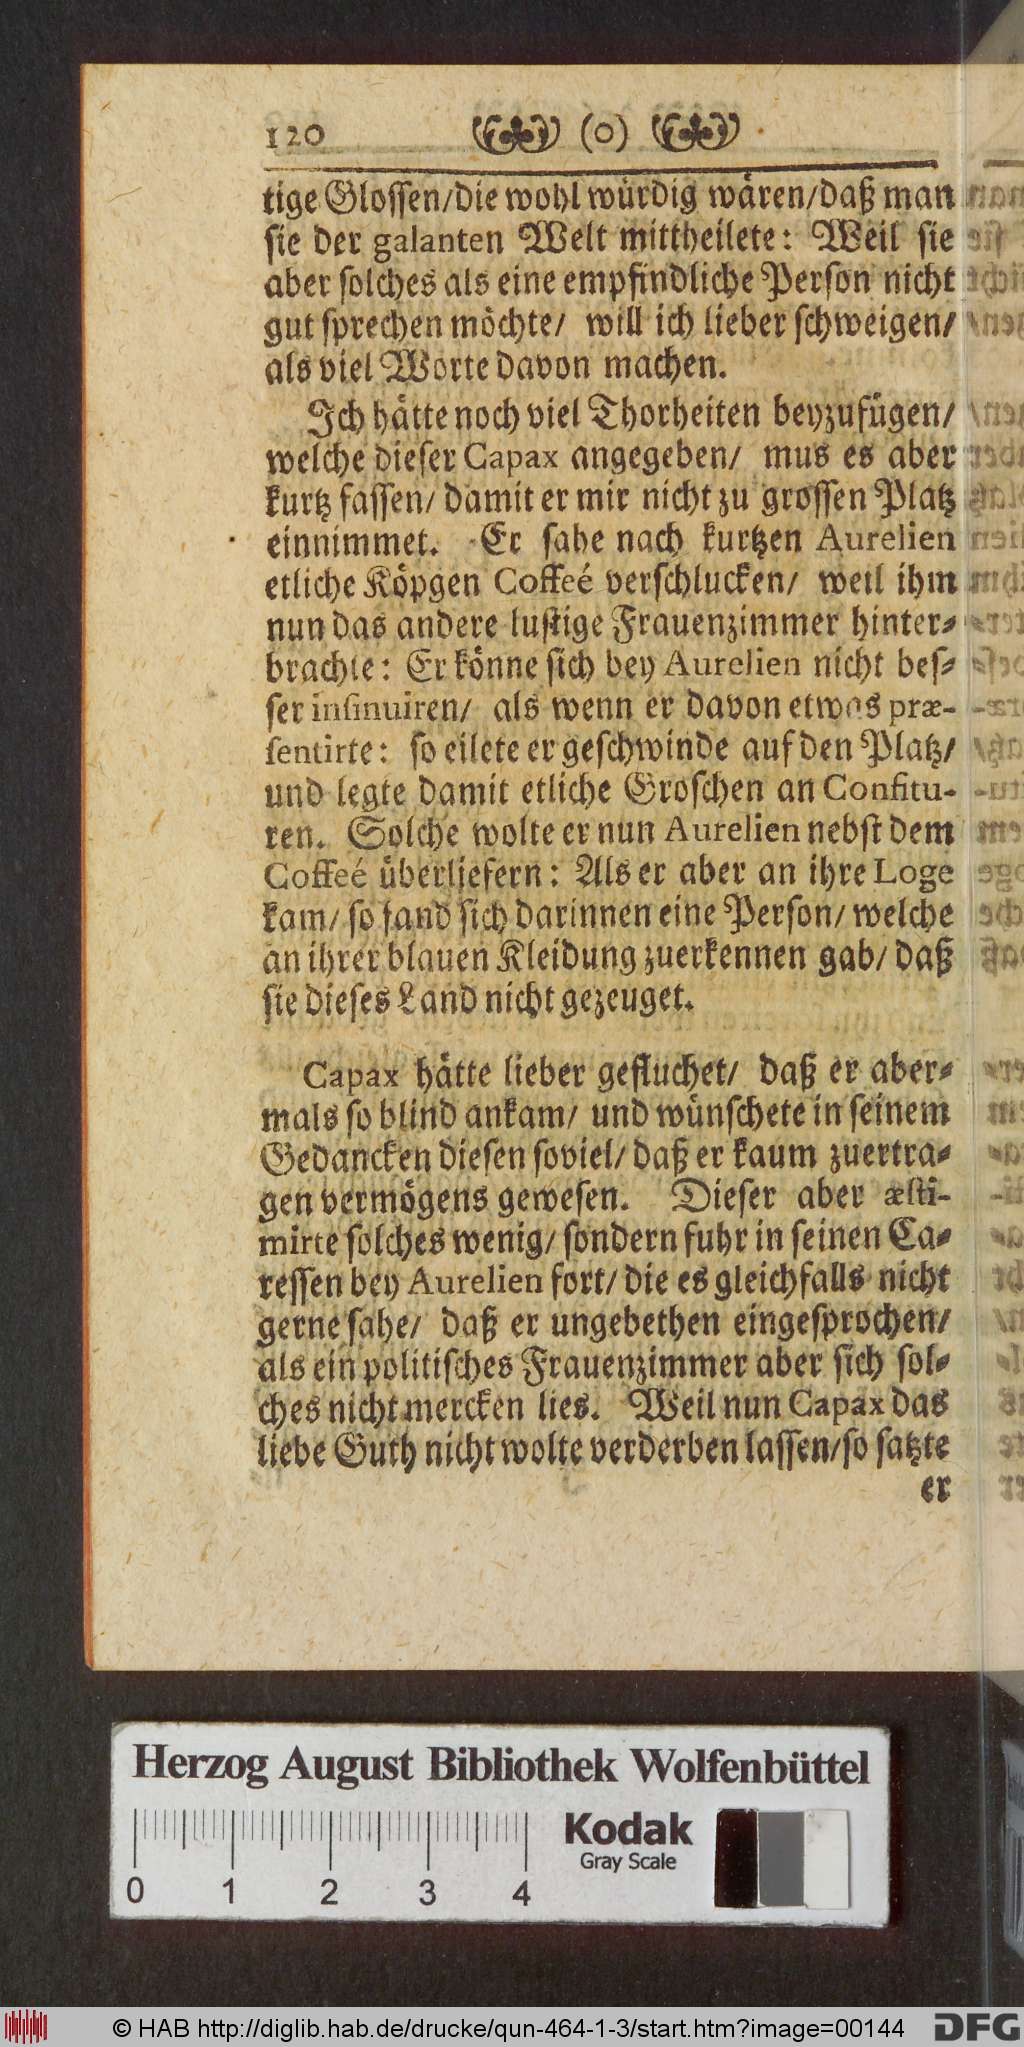 120 (o)
tige Glossen/die wohl würdig wären/daß man
sie der galanten Welt mittheilete: Weil sie
aber solches als eine empfindliche Person nicht
gut sprechen möchte/ will ich lieber schweigen/
als viel Worte davon machen.
Ich hätte noch viel Thorheiten beyzufügen/
welche dieser Capax angegeben/ mus es aber
kurtz fassen/ damit er mir nicht zu grossen Platz
einnimmet. Er sahe nach kurtzen Aurelien
etliche Köpgen Coffeé verschlucken/ weil ihm
nun das andere lustige Frauenzimmer hinter-
brachte: Er könne sich bey Aurelien nicht bes-
ser insinuiren/ als wenn er davon etwas præ-
sentirte: so eilete er geschwinde auf den Platz/
und legte damit etliche Groschen an Confitu-
ren. Solche wolte er nun Aurelien nebst dem
Coffeé überliefern: Als er aber an ihre Loge
kam/ so fand sich darinnen eine Person/ welche
an ihrer blauen Kleidung zuerkennen gab/ daß
sie dieses Land nicht gezeuget.
Capax hätte lieber gefluchet/ daß er aber-
mals so blind ankam/ und wünschete in seinem
Gedancken diesen soviel/ daß er kaum zuertra-
gen vermögens gewesen. Dieser aber æsti-
mirte solches wenig/ sondern fuhr in seinen Ca-
ressen bey Aurelien fort/ die es gleichfalls nicht
gerne sahe/ daß er ungebethen eingesprochen/
als ein politisches Frauenzimmer aber sich sol-
ches nicht mercken lies. Weil nun Capax das
liebe Guth nicht wolte verderben lassen/so satzte
er
Herzog August Bibliothek Wolfenbüttel
Kodak
Gray Scale
0 1 2 3 4
© HAB http://diglib.hab.de/drucke/qun-464-1-3/start.htm?image=00144
DFG